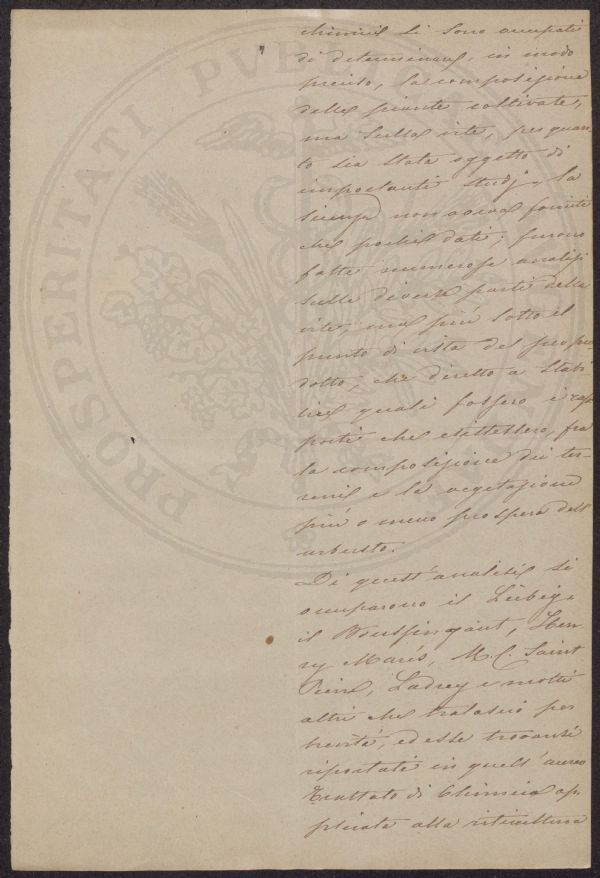 chimici si sono occupati
di determinare, in modo
preciso, la composizione
delle piante coltivate,
ma sulla vite, per quan
to sia stata oggetto di
importanti studj, la
scienza non aveva forniti
che pochi dati; furono
fatte numerose analisi
sulle diverse parti della
vite, ma più sotto il
punto di vista del pro
dotto, che diretto a stabi
lire quali fossero i rap
porti che esistessero, fra
la composizione dei ter
reni e la vegetazione
più o meno prospera dell'
arbusto.
Di quest'analisi si
occuparono il Liebig,
il Boussingant, Hen
ry Marés, M. C. Saint
Pierre, Ladrey e molti
altri che tralascio per
brevità, ed esse trovansi
riportate in quell'aureo
Trattato di Chimica ap
plicata alla viticultura
PROSPERITATI PVBLIC